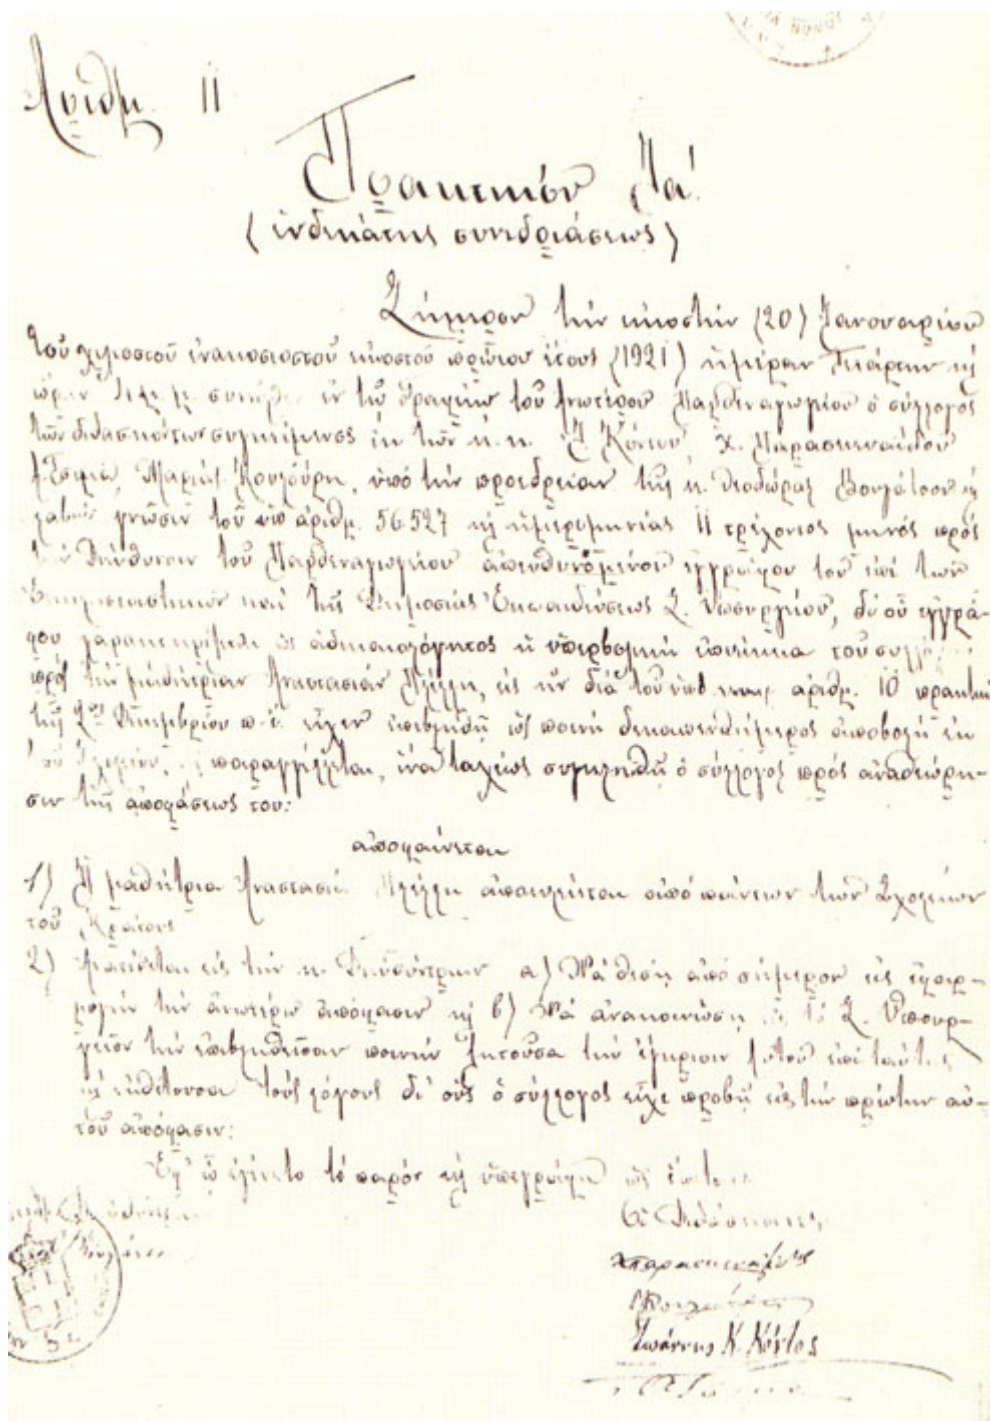 Αριθμ. 11
Πρακτικόν 11α'.
(ἑνδεκάτης συνεδριάσεως)
Σήμερον τὴν εἰκοστὴν (20) Ἰανουαρίου
τοῦ χιλιοστοῦ ἐνακοσιοστοῦ εἰκοστοῦ πρώτου ἔτους (1921) ἡμέραν Τετάρτην κ
ὥραν συνῆλθεν ἐν τῷ Γραφείῳ τοῦ Ἀνωτέρου Παρθεναγωγείου ὁ σύλλογος
τῶν διδασκόντων συγκείμενος ἐκ τῶν κ.κ. Κόντου, Χ. Παρασκευαΐδου
Μαρίας Κουλούρη, ὑπὸ τὴν προεδρείαν τῆς κ. Θεοδώρας κ
λαβὼν γνῶσιν τοῦ ὑπ' ἀριθμ. 56.527 κ ἡμερομηνίας 11 τρέχοντος μηνὸς πρὸς
τὴν Διεύθυνσιν τοῦ Παρθεναγωγείου ἀπευθυνομένου ἐγγράφου τοῦ ἐπὶ τῶν
Ἐκκλησιαστικῶν καὶ τῆς Δημοσίας Ἐκπαιδεύσεως Σ. Ὑπουργείου, δι' οὗ ἐγγρά-
φου χαρακτηρίζεται ὡς ἀδικαιολόγητος ἡ ὑπερβολικὴ ἐπιείκεια τοῦ συλλ
πρὸς τὴν μαθήτριαν Ἀναστασίαν εἰς ἣν διὰ τοῦ ὑπ' ἀριθμ. 10 πρακτικ
τῆς 2ας Δεκεμβρίου π.ἔ. εἶχεν ἐπιβληθῆ ὡς ποινὴ δεκαπενθήμερος ἀποβολὴ ἐκ
τοῦ Σχολείου, κ παραγγέλλεται, ἵνα ταχέως συγκληθῇ ὁ σύλλογος πρὸς ἀναθεώρη-
σιν τῆς ἀποφάσεώς του:
ἀποφαίνεται
1) Ἡ μαθήτρια Ἀναστασία ἀποκλείεται ἀπὸ πάντων τῶν Σχολείων
τοῦ Κράτους
2) Ἀνατίθεται εἰς τὴν κ. Διευθύντριαν α) Νὰ θέσῃ ἀπὸ σήμερον εἰς ἐφαρ-
μογὴν τὴν ἀνωτέρω ἀπόφασιν κ β) Νὰ ἀνακοινώσῃ εἰς τὸ Σ. Ὑπουρ-
γεῖον τὴν ἐπιβληθεῖσαν ποινὴν ζητοῦσα τὴν ἔγκρισιν Αὐτοῦ ἐπὶ ταύτης
κ ἐκθέτουσα τοὺς λόγους δι' οὓς ὁ σύλλογος εἶχε προβῆ εἰς τὴν πρώτην αὐ-
τοῦ ἀπόφασιν:
Ἐφ' ᾧ ἐγένετο τὸ παρὸν κ ὑπεγράφη ὡς ἕπεται
Οἱ Διδάσκοντες
Χ Παρασκευαΐδης
Ἰωάννης Κ. Κόντος